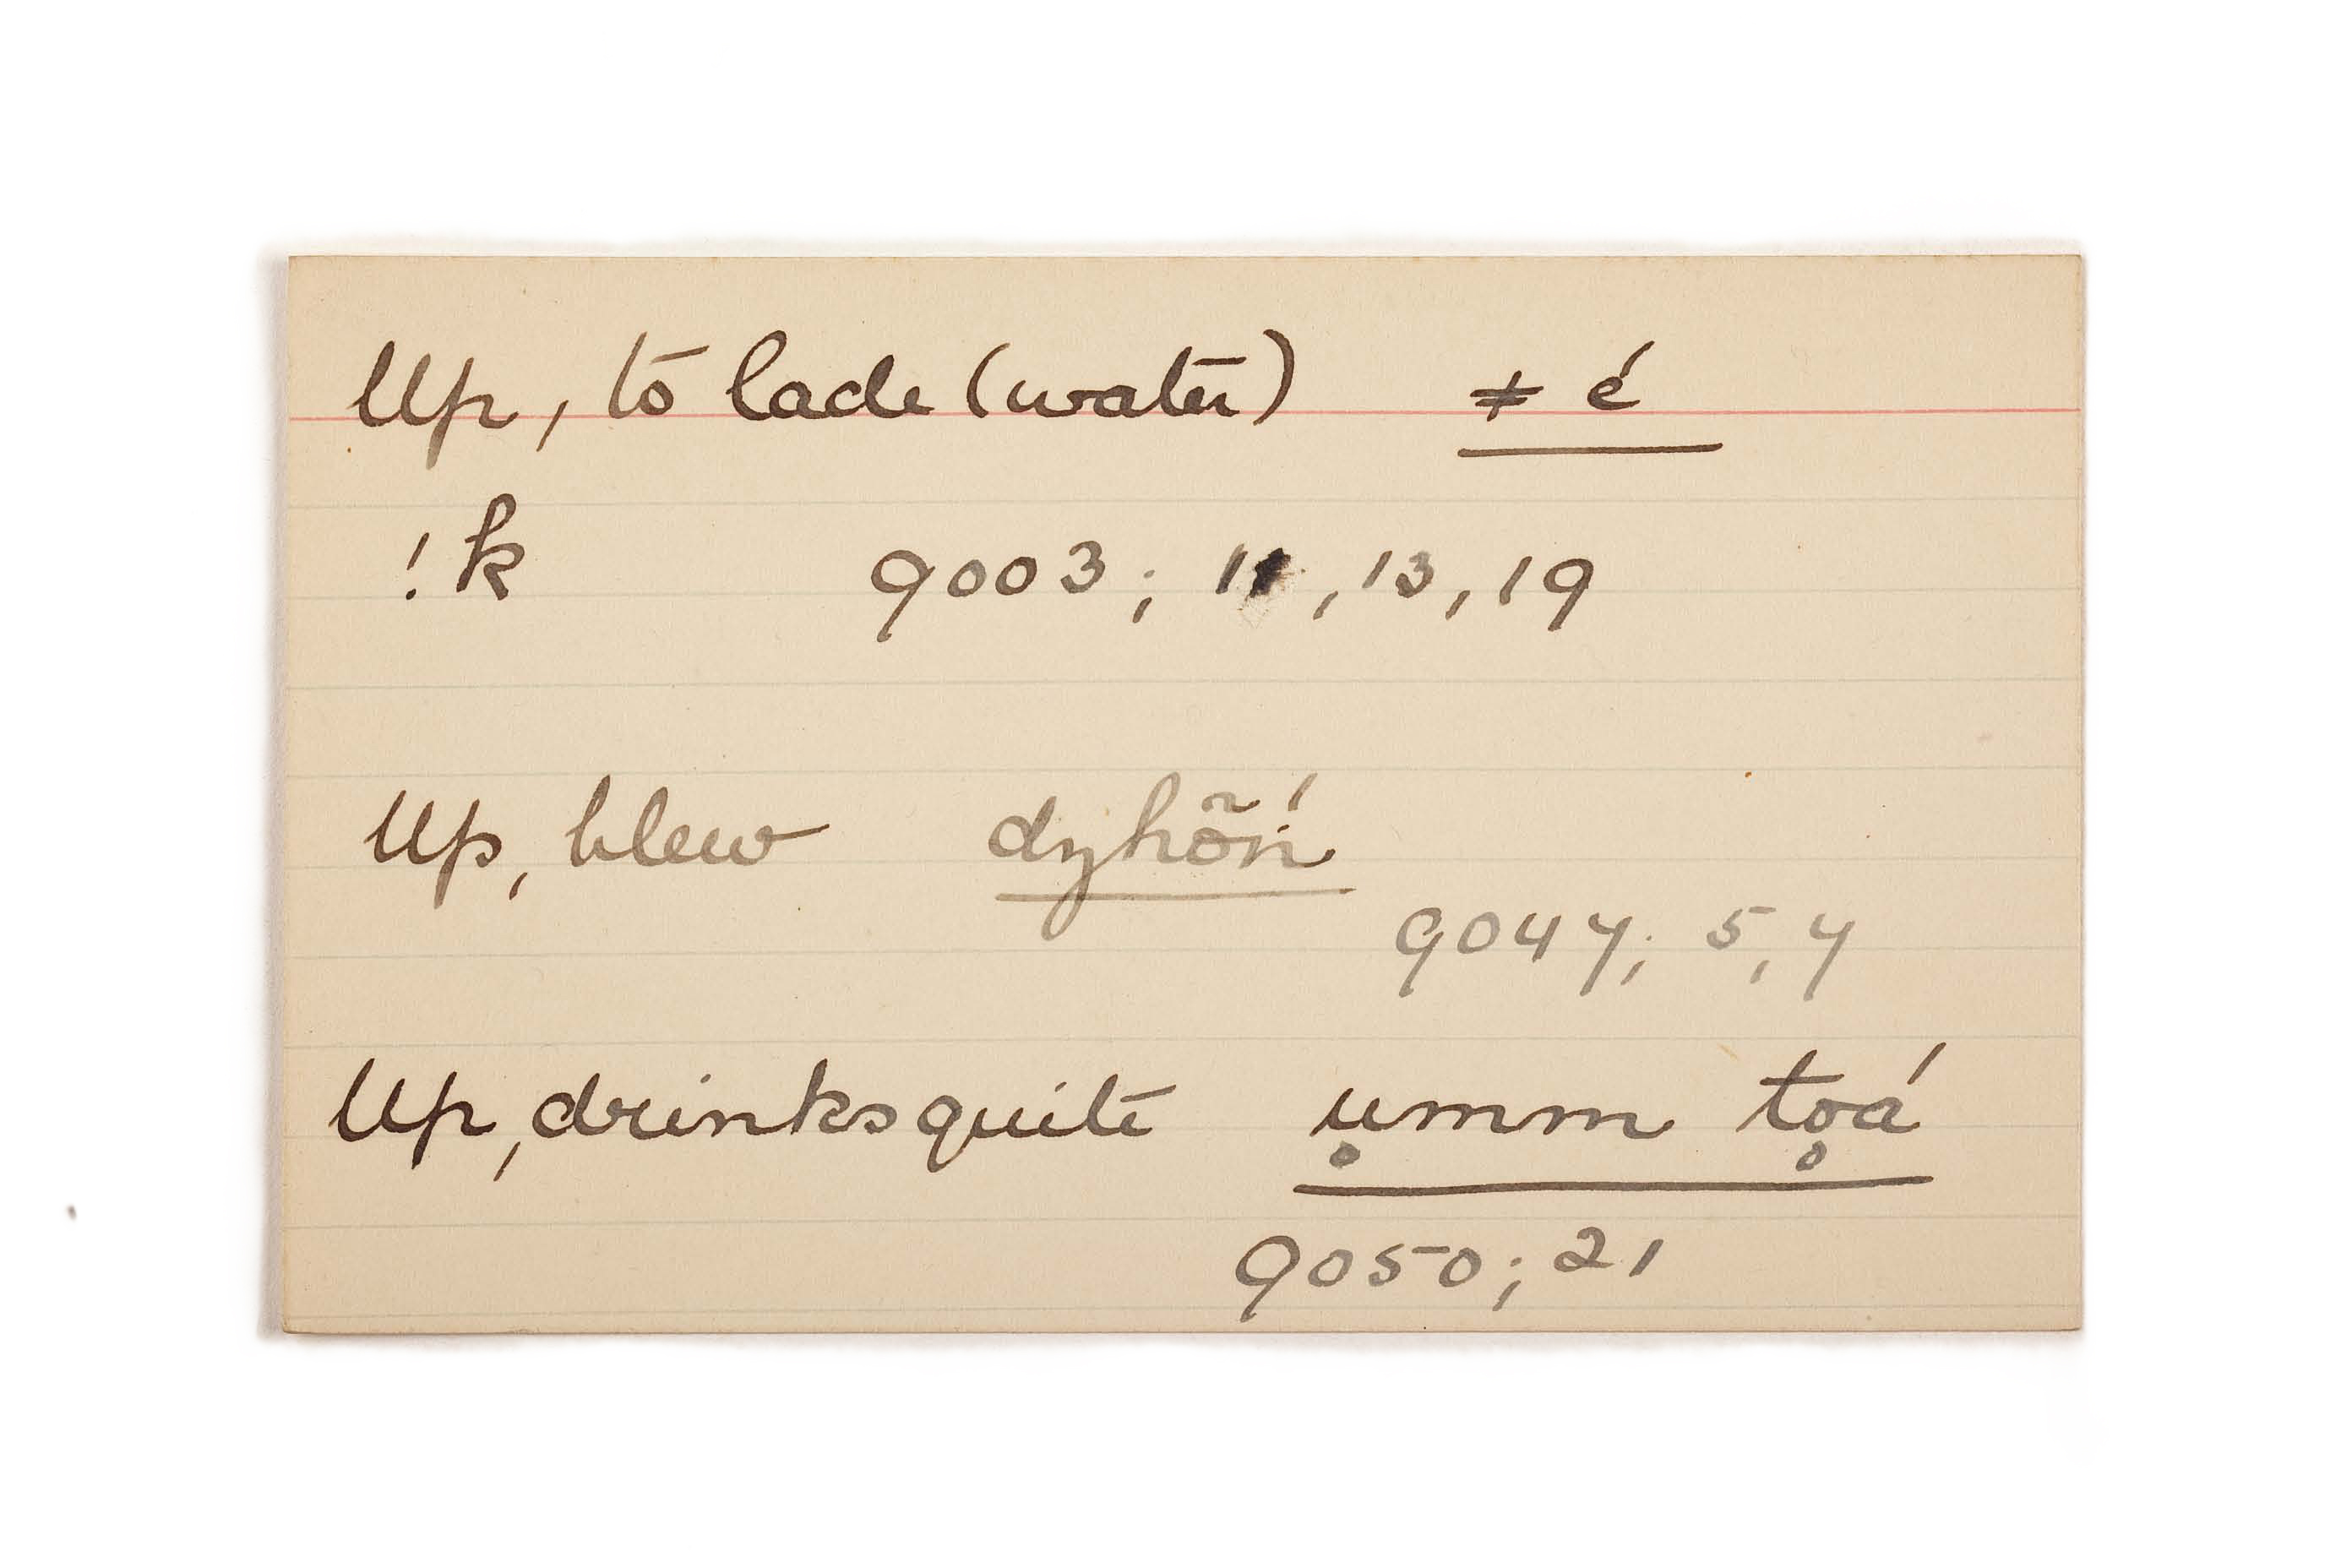 Up, to lade (water) ǂ é
!k 9003; 11, 13, 19
Up, blew dyhõń
9047; 5, 7
Up, drinks quite u̥mm to̥á
9050; 21